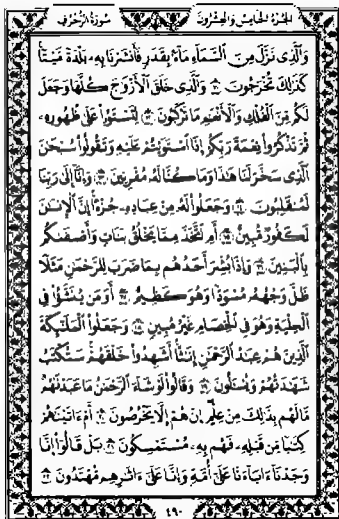 سورة الزخرف الجزء الخامس والعشرون
وَٱلَّذِى نَزَّلَ مِنَ ٱلسَّمَآءِ مَآءَۢ بِقَدَرٍ فَأَنشَرْنَا بِهِۦ بَلْدَةً مَّيْتًا
كَذَٰلِكَ تُخْرَجُونَ ١١ وَٱلَّذِى خَلَقَ ٱلْأَزْوَٰجَ كُلَّهَا وَجَعَلَ
لَكُم مِّنَ ٱلْفُلْكِ وَٱلْأَنْعَٰمِ مَا تَرْكَبُونَ ١٢ لِتَسْتَوُۥا۟ عَلَىٰ ظُهُورِهِۦ
ثُمَّ تَذْكُرُوا۟ نِعْمَةَ رَبِّكُمْ إِذَا ٱسْتَوَيْتُمْ عَلَيْهِ وَتَقُولُوا۟ سُبْحَٰنَ
ٱلَّذِى سَخَّرَ لَنَا هَٰذَا وَمَا كُنَّا لَهُۥ مُقْرِنِينَ ١٣ وَإِنَّآ إِلَىٰ رَبِّنَا
لَمُنقَلِبُونَ ١٤ وَجَعَلُوا۟ لَهُۥ مِنْ عِبَادِهِۦ جُزْءًا إِنَّ ٱلْإِنسَٰنَ
لَكَفُورٌ مُّبِينٌ ١٥ أَمِ ٱتَّخَذَ مِمَّا يَخْلُقُ بَنَاتٍ وَأَصْفَىٰكُم
بِٱلْبَنِينَ ١٦ وَإِذَا بُشِّرَ أَحَدُهُم بِمَا ضَرَبَ لِلرَّحْمَٰنِ مَثَلًا
ظَلَّ وَجْهُهُۥ مُسْوَدًّا وَهُوَ كَظِيمٌ ١٧ أَوَمَن يُنَشَّؤُا۟ فِى
ٱلْحِلْيَةِ وَهُوَ فِى ٱلْخِصَامِ غَيْرُ مُبِينٍ ١٨ وَجَعَلُوا۟ ٱلْمَلَٰٓئِكَةَ
ٱلَّذِينَ هُمْ عِبَٰدُ ٱلرَّحْمَٰنِ إِنَٰثًا أَشَهِدُوا۟ خَلْقَهُمْ سَتُكْتَبُ
شَهَٰدَتُهُمْ وَيُسْـَٔلُونَ ١٩ وَقَالُوا۟ لَوْ شَآءَ ٱلرَّحْمَٰنُ مَا عَبَدْنَٰهُم
مَّا لَهُم بِذَٰلِكَ مِنْ عِلْمٍ إِنْ هُمْ إِلَّا يَخْرُصُونَ ٢٠ أَمْ ءَاتَيْنَٰهُمْ
كِتَٰبًا مِّن قَبْلِهِۦ فَهُم بِهِۦ مُسْتَمْسِكُونَ ٢١ بَلْ قَالُوٓا۟ إِنَّا
وَجَدْنَآ ءَابَآءَنَا عَلَىٰٓ أُمَّةٍ وَإِنَّا عَلَىٰٓ ءَاثَٰرِهِم مُّهْتَدُونَ ٢٢
٤٩٠